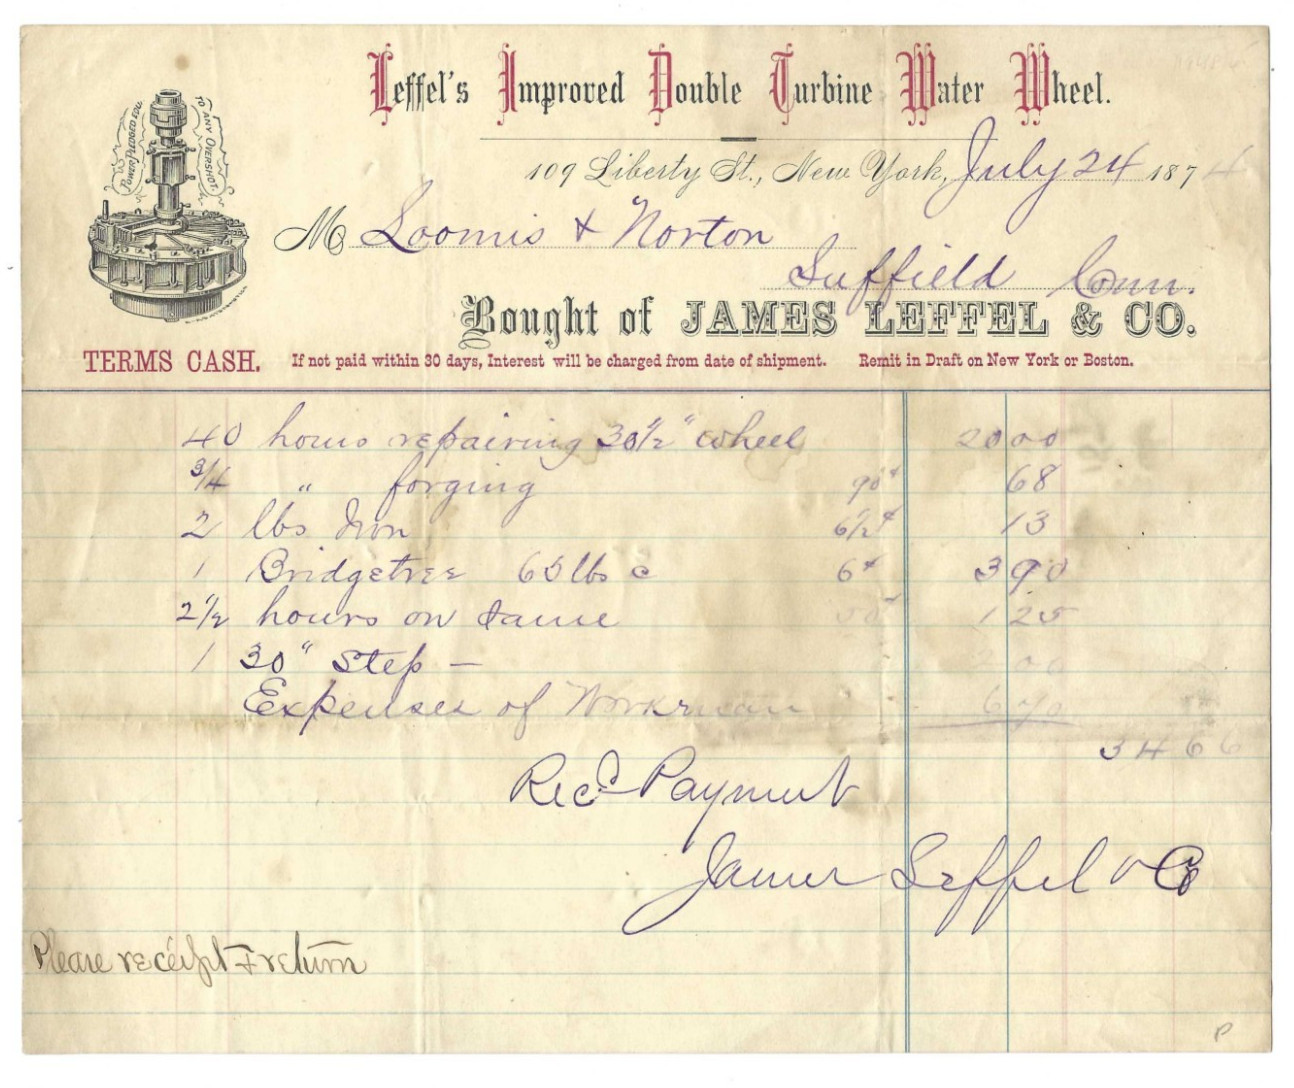 Leffel's Improved Double Turbine Water Wheel.
POWER PLEDGED EQUAL TO ANY OVERSHOT.
109 Liberty St., New York, July 24 1874
M Loomis & Norton
Suffield Conn.
Bought of JAMES LEFFEL & CO.
TERMS CASH. If not paid within 30 days, Interest will be charged from date of shipment. Remit in Draft on New York or Boston.
40 hours repairing 30½" wheel 20 00
3/4 " forging 90¢ 68
2 lbs Iron 6½¢ 13
1 Bridgetree 65 lbs @ 6¢ 3 90
2½ hours on same 50¢ 1 25
1 30" Step — 2 00
Expenses of Workman 6 70
34 66
Recd Payment
James Leffel & Co
Please receipt & return
P